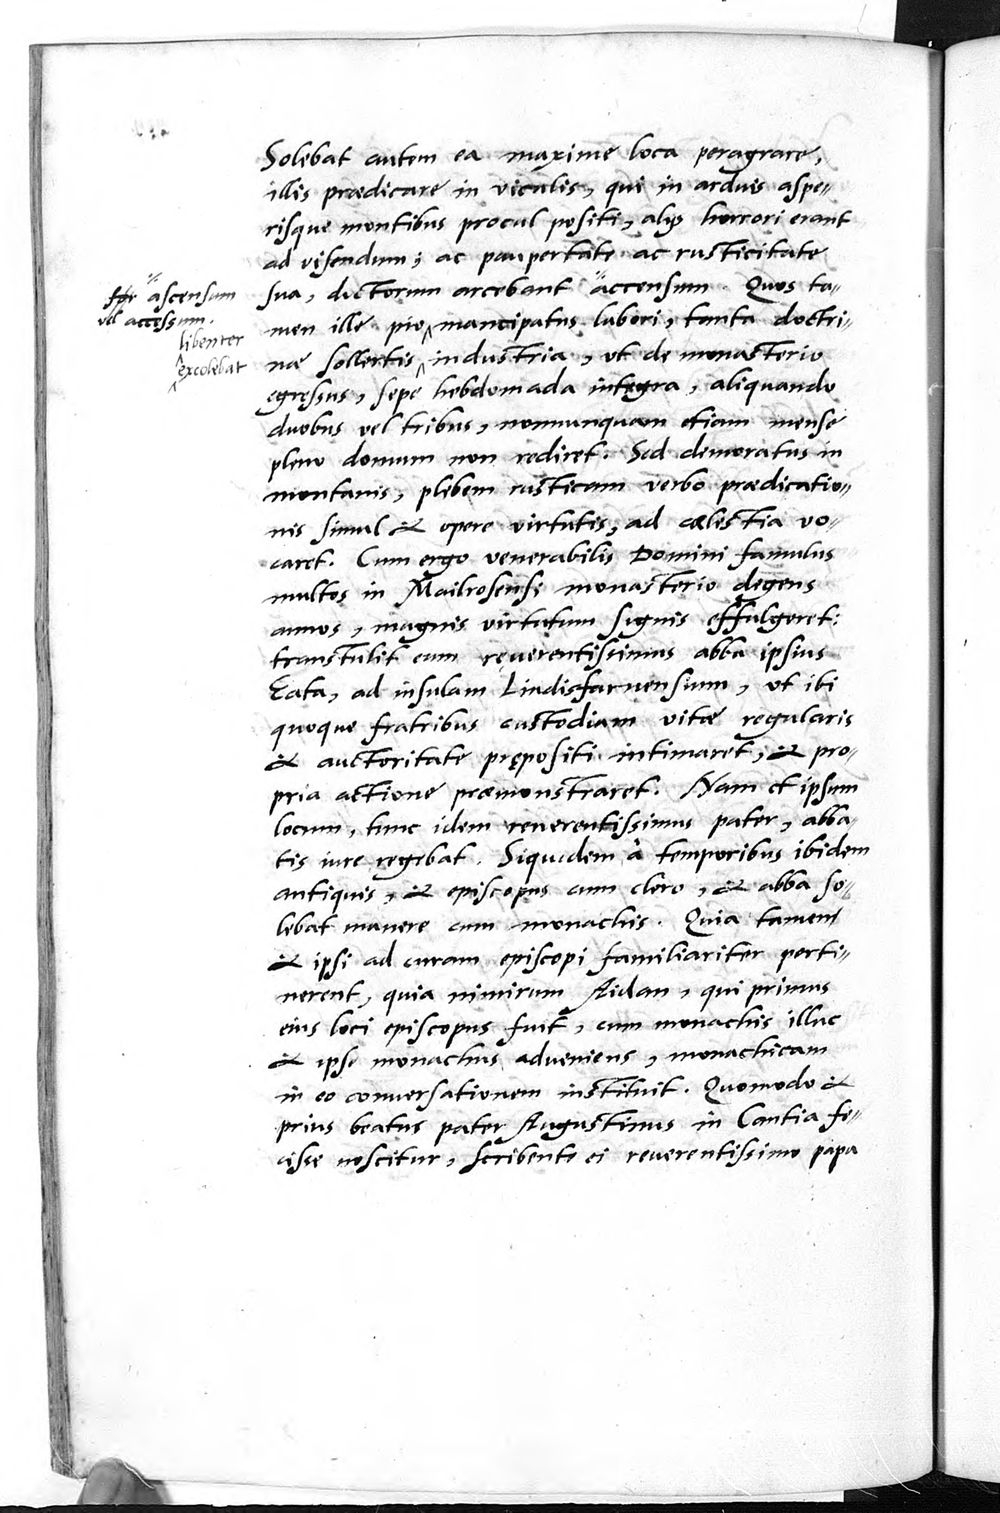 Solebat autem ea maxime loca peragrare,
illis prædicare in viculis, qui in arduis aspe〃
risque montibus procul positi, alijs horrori erant
ad visendum; ac paupertate ac rusticitate
sua, doctorum arcebant accensum. Quos ta〃
ascensum
vel accessum.
men ille pio mancipatus labori, tanta doctri〃
libenter
næ sollertis industria, vt de monasterio
excolebat
egressus, sepe hebdomada integra, aliquando
duobus vel tribus, nonnunquam etiam mense
pleno domum non rediret. Sed demoratus in
montanis, plebem rusticam verbo prædicatio〃
nis simul & opere virtutis, ad cælestia vo〃
caret. Cum ergo venerabilis Domini famulus
multos in Mailrosensi monasterio degens
annos, magnis virtutum signis effulgeret:
transtulit eum reverentissimus abba ipsius
Eata, ad insulam Lindisfarnensium, vt ibi
quoque fratribus custodiam vitæ regularis
& auctoritate prępositi intimaret, & pro〃
pria actione præmonstraret. Nam et ipsum
locum, tunc idem reuerentissimus pater, abba〃
tis iure regebat. Siquidem à temporibus ibidem
antiquis, & episcopus cum clero, & abba so〃
lebat manere cum monachis. Quia tamen
& ipsi ad curam episcopi familiariter perti〃
nerent, quia nimirum Aidan, qui primus
eius loci episcopus fuit, cum monachis illuc
& ipse monachus adueniens, monachicam
in eo conuersationem instituit. Quomodo &
prius beatus pater Augustinus in Cantia fe〃
cisse noscitur, scribente ei reuerentissimo papa